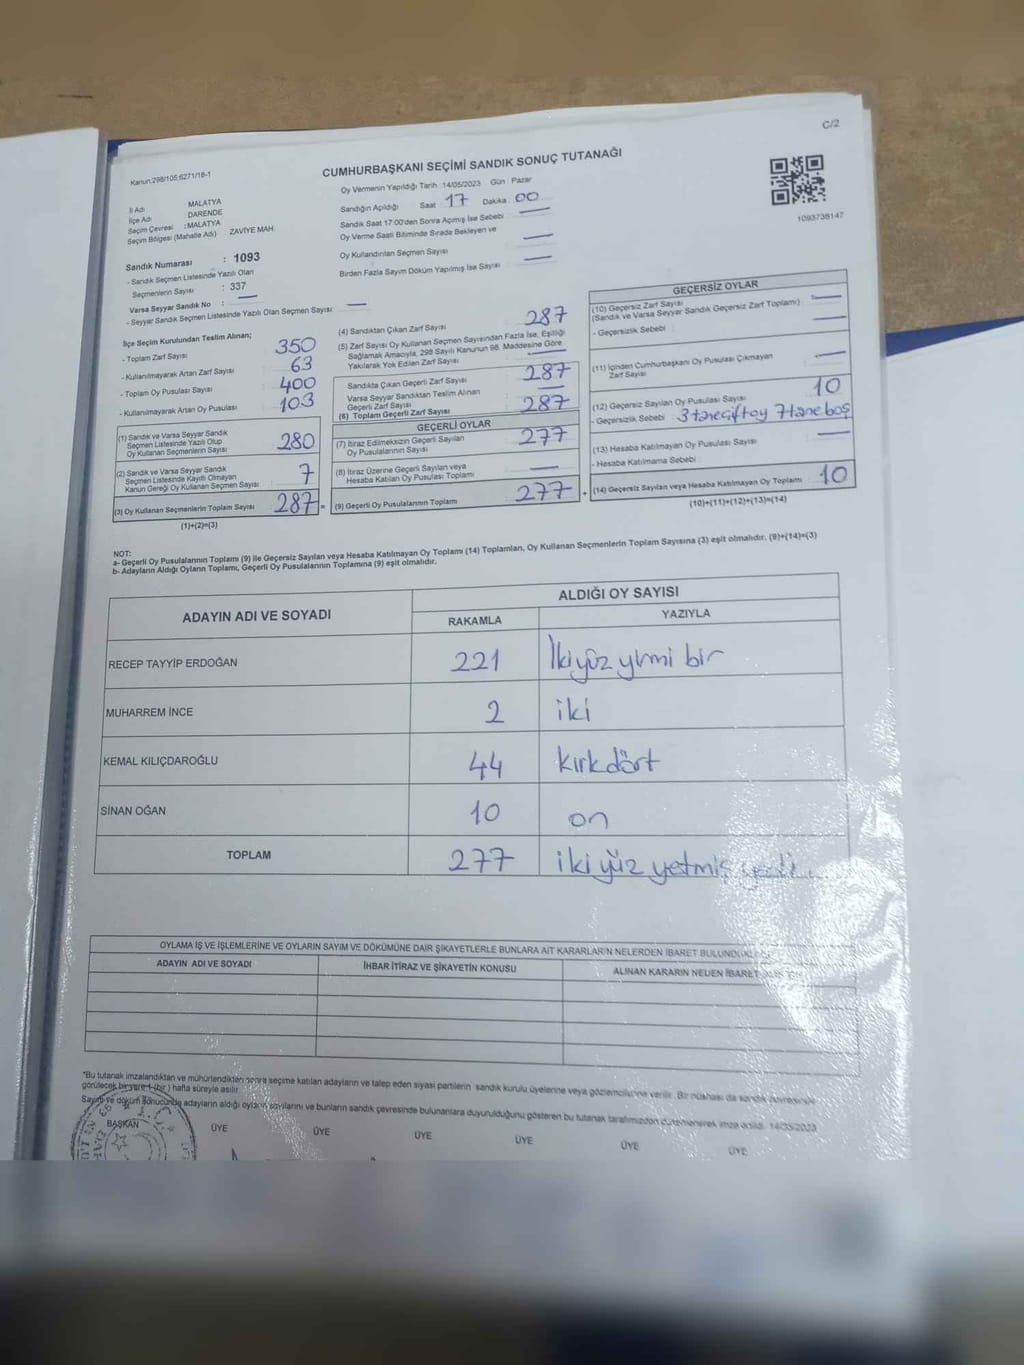 C/2
Kanun:298/105;6271/18-1
CUMHURBAŞKANI SEÇİMİ SANDIK SONUÇ TUTANAĞI
Oy Vermenin Yapıldığı Tarih :14/05/2023 Gün Pazar
İl Adı : MALATYA
İlçe Adı : DARENDE
Seçim Çevresi : MALATYA
Seçim Bölgesi (Mahalle Adı) : ZAVİYE MAH.
Sandığın Açıldığı Saat 17 Dakika 00
Sandık Saat 17:00'den Sonra Açılmış İse Sebebi —
Oy Verme Saati Bitiminde Sırada Bekleyen ve
Oy Kullandırılan Seçmen Sayısı —
Birden Fazla Sayım Döküm Yapılmış İse Sayısı —
1093738147
Sandık Numarası : 1093
- Sandık Seçmen Listesinde Yazılı Olan
Seçmenlerin Sayısı : 337
Varsa Seyyar Sandık No : —
- Seyyar Sandık Seçmen Listesinde Yazılı Olan Seçmen Sayısı: —
İlçe Seçim Kurulundan Teslim Alınan;
- Toplam Zarf Sayısı 350
- Kullanılmayarak Artan Zarf Sayısı 63
- Toplam Oy Pusulası Sayısı 400
- Kullanılmayarak Artan Oy Pusulası 103
(1) Sandık ve Varsa Seyyar Sandık
Seçmen Listesinde Yazılı Olup
Oy Kullanan Seçmenlerin Sayısı 280
(2) Sandık ve Varsa Seyyar Sandık
Seçmen Listesinde Kayıtlı Olmayan
Kanun Gereği Oy Kullanan Seçmen Sayısı 7
(3) Oy Kullanan Seçmenlerin Toplam Sayısı 287 =
(1)+(2)=(3)
(4) Sandıktan Çıkan Zarf Sayısı 287
(5) Zarf Sayısı Oy Kullanan Seçmen Sayısından Fazla İse, Eşitliği
Sağlamak Amacıyla, 298 Sayılı Kanunun 98. Maddesine Göre
Yakılarak Yok Edilen Zarf Sayısı —
Sandıkta Çıkan Geçerli Zarf Sayısı 287
Varsa Seyyar Sandıktan Teslim Alınan
Geçerli Zarf Sayısı —
(6) Toplam Geçerli Zarf Sayısı 287
GEÇERLİ OYLAR
(7) İtiraz Edilmeksizin Geçerli Sayılan
Oy Pusulalarının Sayısı 277
(8) İtiraz Üzerine Geçerli Sayılan veya
Hesaba Katılan Oy Pusulası Toplamı —
(9) Geçerli Oy Pusulalarının Toplamı 277 +
GEÇERSİZ OYLAR
(10) Geçersiz Zarf Sayısı —
(Sandık ve Varsa Seyyar Sandık Geçersiz Zarf Toplamı)
- Geçersizlik Sebebi —
(11) İçinden Cumhurbaşkanı Oy Pusulası Çıkmayan
Zarf Sayısı —
(12) Geçersiz Sayılan Oy Pusulası Sayısı 10
- Geçersizlik Sebebi 3 tane çift oy 7 tane boş
(13) Hesaba Katılmayan Oy Pusulası Sayısı —
- Hesaba Katılmama Sebebi
(14) Geçersiz Sayılan veya Hesaba Katılmayan Oy Toplamı 10
(10)+(11)+(12)+(13)=(14)
NOT:
a- Geçerli Oy Pusulalarının Toplamı (9) ile Geçersiz Sayılan veya Hesaba Katılmayan Oy Toplamı (14) Toplamları, Oy Kullanan Seçmenlerin Toplam Sayısına (3) eşit olmalıdır. (9)+(14)=(3)
b- Adayların Aldığı Oyların Toplamı, Geçerli Oy Pusulalarının Toplamına (9) eşit olmalıdır.
ADAYIN ADI VE SOYADI ALDIĞI OY SAYISI
RAKAMLA YAZIYLA
RECEP TAYYİP ERDOĞAN 221 İkiyüz yirmi bir
MUHARREM İNCE 2 iki
KEMAL KILIÇDAROĞLU 44 kırkdört
SİNAN OĞAN 10 on
TOPLAM 277 ikiyüz yetmiş yedi
OYLAMA İŞ VE İŞLEMLERİNE VE OYLARIN SAYIM VE DÖKÜMÜNE DAİR ŞİKAYETLERLE BUNLARA AİT KARARLARIN NELERDEN İBARET
ADAYIN ADI VE SOYADI İHBAR İTİRAZ VE ŞİKAYETİN KONUSU ALINAN KARARIN NEDEN İBARET
*Bu tutanak imzalandıktan ve mühürlendikten sonra seçime katılan adayların ve talep eden siyasi partilerin sandık kurulu üyelerine veya gözlemcilerine verilir. Bir nüshası da sandık çevresinde
görülecek bir yere 1 (bir) hafta süreyle asılır.
Sayım ve döküm sonucunda adayların aldığı oyların sayılarını ve bunların sandık çevresinde bulunanlara duyurulduğunu gösteren bu tutanak tarafımızdan düzenlenerek imza edildi. 14/05/2023
BAŞKAN ÜYE ÜYE ÜYE ÜYE ÜYE ÜYE